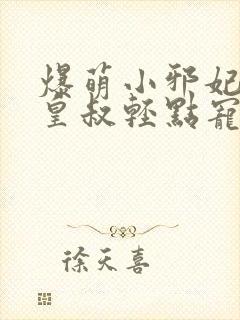 爆萌小邪妃
皇叔輕點寵
徐天喜